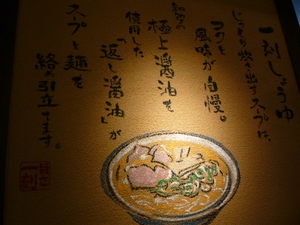 一刻しょうゆ
じっくり炊き出すスープは、
コクと
風味が自慢。
極上醤油を
使用した
「返し醤油」が
スープと麺を
絡め引立てます。